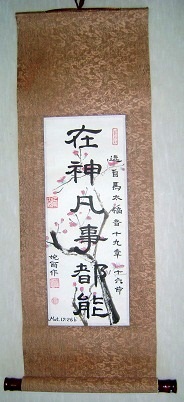 在神凡事都能
自馬太福音十九章二十六節
Mat.19:26b